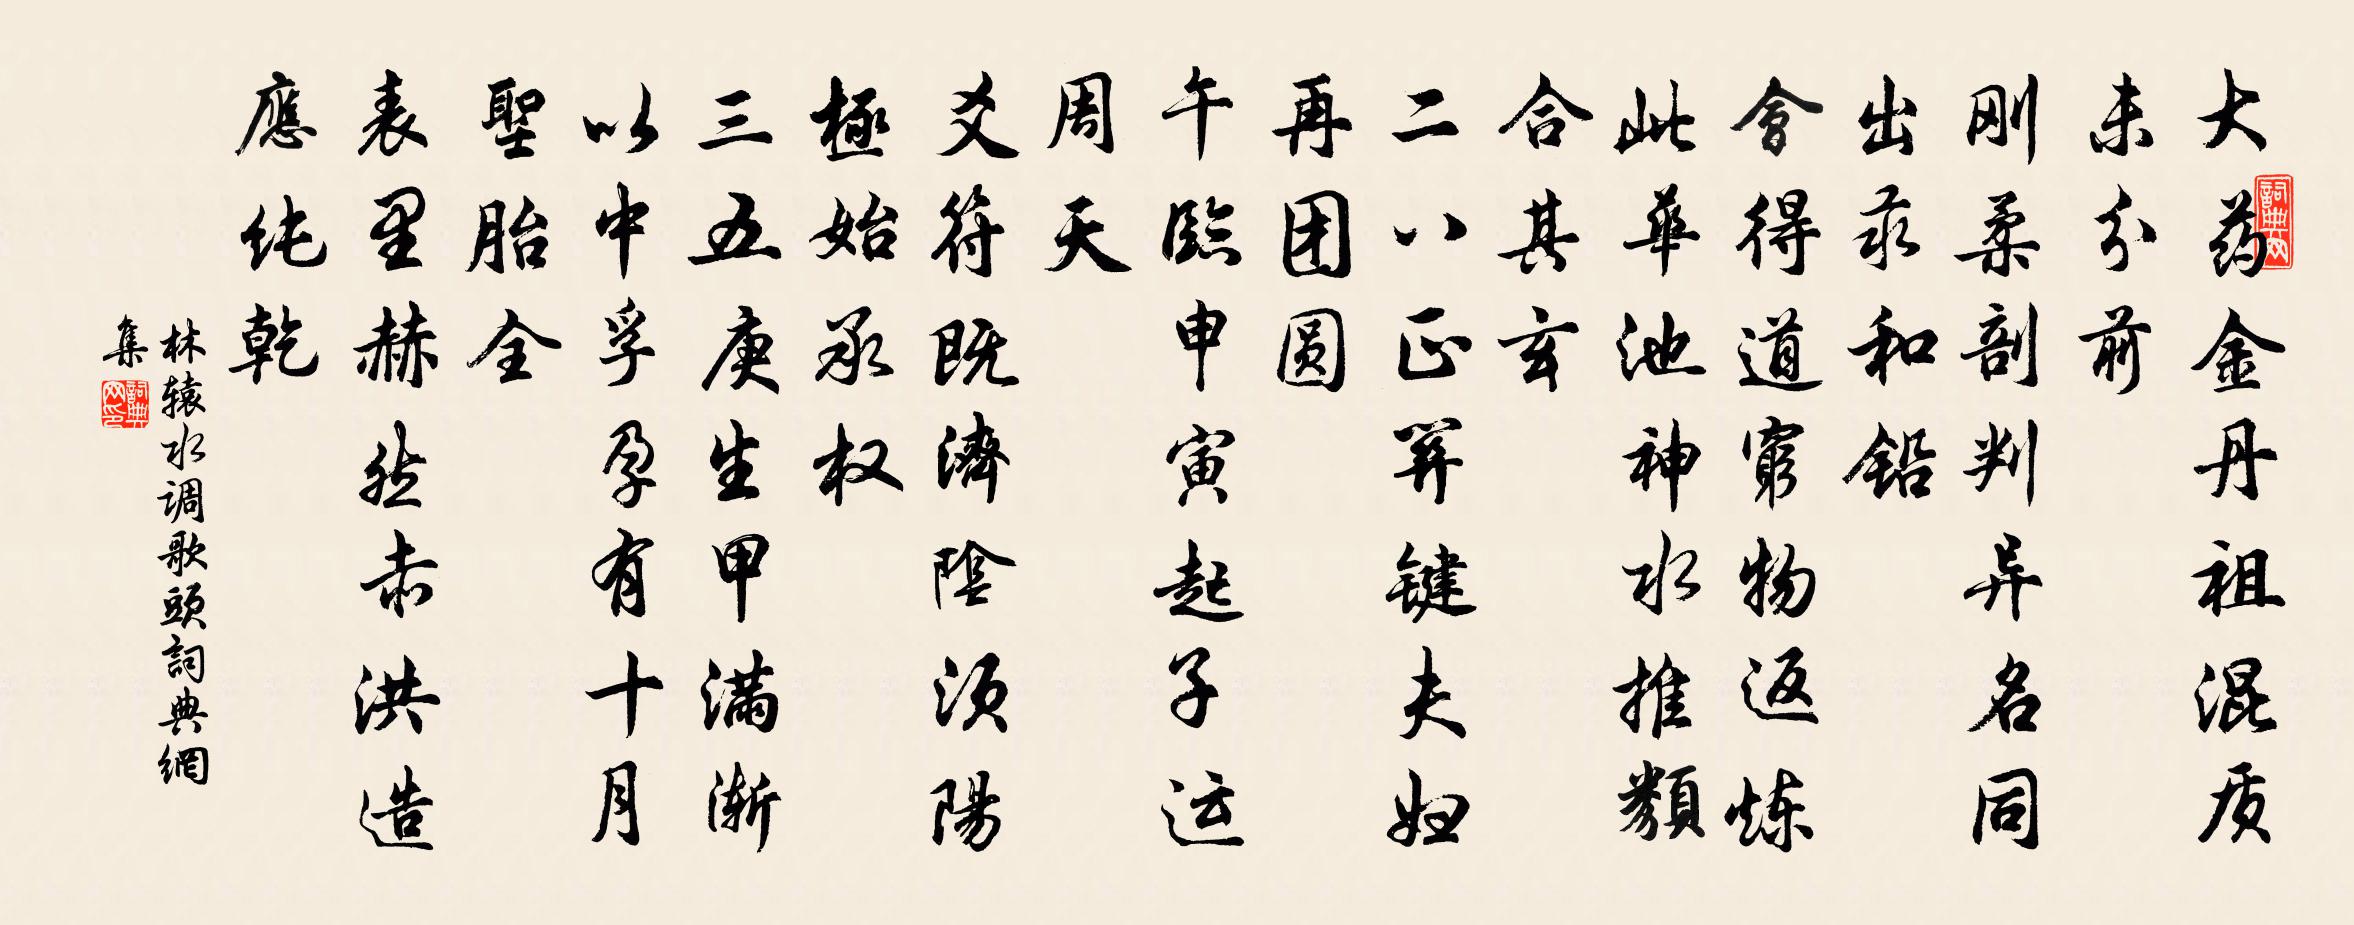 大药金丹祖混质
未分前
刚柔剖判异名同
出汞和铅
會得道窮物返炼
此華池神水推類
合其玄
二八正关键夫妇
再团圆
午臨申寅起子运
周天
爻符既濟陰须陽
極始承权
三五庚生甲满渐
以中孚孕有十月
聖胎全
表里赫然赤洪造
應纯乾
林辕水调歌頭詞典網
集
詞典网
詞典网印